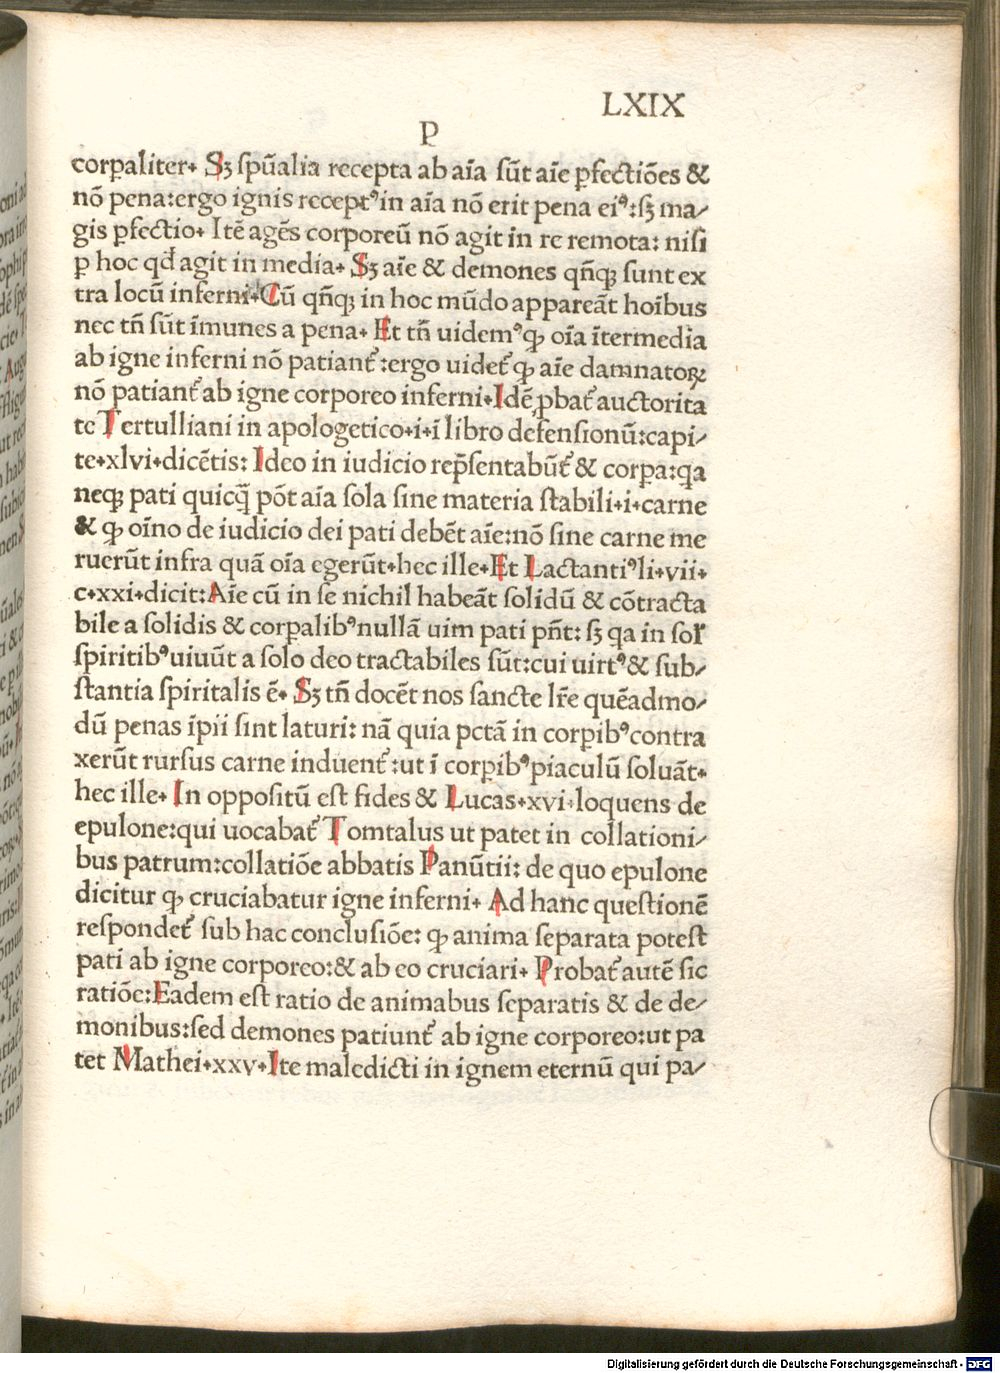 LXIX
P
corꝑaliter. Sꝫ spũalia recepta ab aĩa sũt aĩe ꝑfectiões &
nõ pena:ergo ignis receptꝰ in aĩa nõ erit pena eiꝰ:sꝫ ma/
gis ꝑfectio. Itẽ agẽs corporeũ nõ agit in re remota: nisi
ꝑ hoc qđ agit in media. Sꝫ aĩe & demones qñqꝫ sunt ex
tra locũ inferni. Cũ qñqꝫ in hoc mũdo appareãt hoĩbus
nec tñ sũt ĩmunes a pena. Et tñ uidemꝰ ꝙ oĩa ĩtermedia
ab igne inferni nõ patiant᷑ :ergo uidet᷑ ꝙ aĩe damnatoꝝ
nõ patiant᷑ ab igne corporeo inferni. Idẽ ꝓbat᷑ auctorita
te Tertulliani in apologetico.i.ĩ libro defensionũ:capi/
te.xlvi.dicẽtis: Ideo in iudicio rep̃sentabũt᷑ & corpa:qa
neqꝫ pati quicq̃ põt aĩa sola sine materia stabili.i.carne
& ꝙ oĩno de iudicio dei pati debẽt aĩe:nõ sine carne me
ruerũt infra quã oĩa egerũt.hec ille. Et Lactantiꝰ li.vii.
c.xxi.dicit:Aĩe cũ in se nichil habeãt solidũ & cõtracta
bile a solidis & corꝑalibꝰ nullã uim pati pñt: sꝫ qa in sol̃
spiritibꝰ uiuũt a solo deo tractabiles sũt:cui uirtꝰ & sub/
stantia spiritalis ẽ. Sꝫ tñ docẽt nos sancte lr̃e quẽadmo/
dũ penas ĩpii sint laturi: nã quia pctã in corꝑibꝰ contra
xerũt rursus carne induent᷑ :ut ĩ corꝑibꝰ piaculũ soluãt.
hec ille. In oppositũ est fides & Lucas.xvi.loquens de
epulone:qui uocabat᷑ Tomtalus ut patet in collationi/
bus patrum:collatiõe abbatis Panũtii: de quo epulone
dicitur ꝙ cruciabatur igne inferni. Ad hanc questionẽ
respondet᷑ sub hac conclusiõe: ꝙ anima separata potest
pati ab igne corporeo:& ab eo cruciari. Probat᷑ autẽ sic
ratiõe:Eadem est ratio de animabus separatis & de de/
monibus:sed demones patiunt᷑ ab igne corporeo:ut pa
tet Mathei.xxv.Ite maledicti in ignem eternũ qui pa/
Digitalisierung gefördert durch die Deutsche Forschungsgemeinschaft - DFG